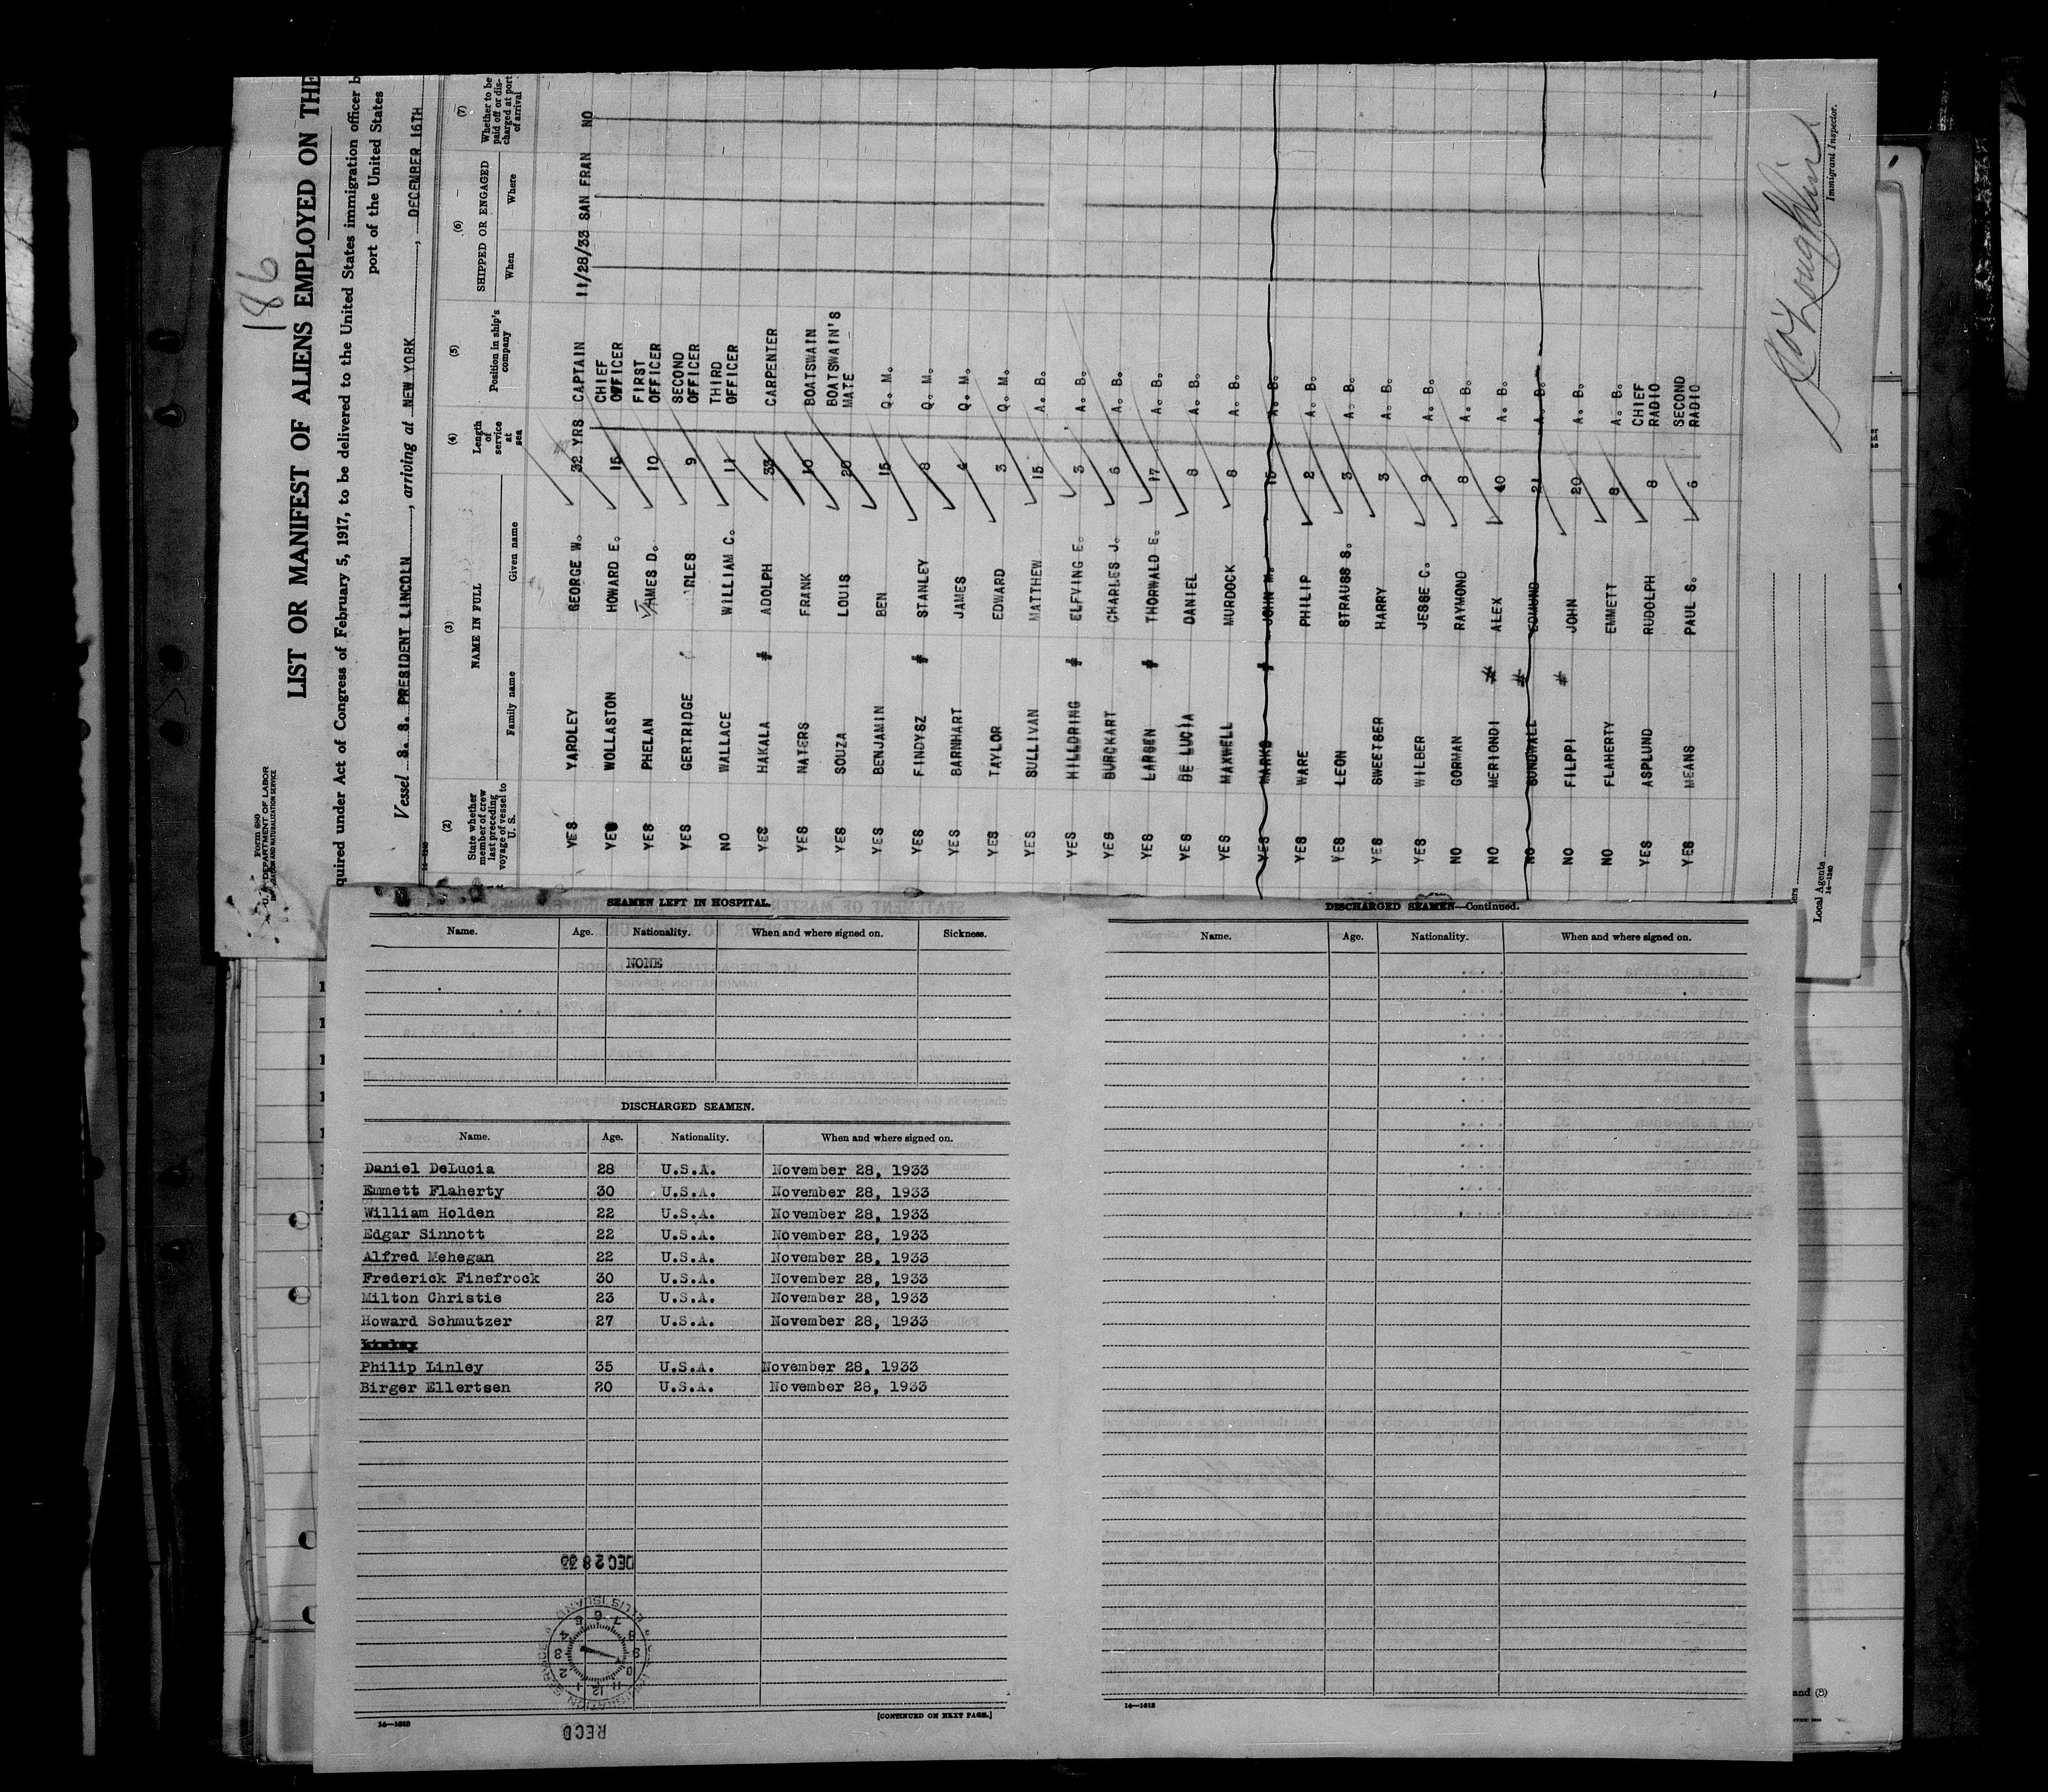 186
Form 680
U. S. DEPARTMENT OF LABOR
IMMIGRATION AND NATURALIZATION SERVICE
LIST OR MANIFEST OF ALIENS EMPLOYED ON THE
quired under Act of Congress of February 5, 1917, to be delivered to the United States immigration officer b
port of the United States
Vessel S. S. PRESIDENT LINCOLN, arriving at NEW YORK, DECEMBER 16TH
14—1240
(2) (3) (4) (5) (6) (7)
State whether member of crew last preceding voyage of vessel to U. S. NAME IN FULL Length of service at sea Position in ship's company SHIPPED OR ENGAGED Whether to be paid off or discharged at port of arrival
Family name Given name When Where
YES YARDLEY GEORGE W. 32 YRS CAPTAIN 11/28/33 SAN FRAN NO
YES WOLLASTON HOWARD E. 15 CHIEF OFFICER
YES PHELAN JAMES D. 10 FIRST OFFICER
YES GERTRIDGE RLES 9 SECOND OFFICER
NO WALLACE WILLIAM C. 11 THIRD OFFICER
YES HAKALA # ADOLPH 33 CARPENTER
YES NATERS FRANK 10 BOATSWAIN
YES SOUZA LOUIS 20 BOATSWAIN'S MATE
YES BENJAMIN BEN 15 Q. M.
YES FINDYSZ # STANLEY 8 Q. M.
YES BARNHART JAMES 4 Q. M.
YES TAYLOR EDWARD 3 Q. M.
YES SULLIVAN MATTHEW 15 A. B.
YES HILLDRING # ELFVING E. 3 A. B.
YES BURCKART CHARLES J. 6 A. B.
YES LARSEN # THORWALD E. 17 A. B.
YES DE LUCIA DANIEL 8 A. B.
YES MAXWELL MURDOCK 8 A. B.
YES MARKS # JOHN M. 15 A. B.
YES WARE PHILIP 2 A. B.
YES LEON STRAUSS S. 3 A. B.
YES SWEETSER HARRY 3 A. B.
YES WILBER JESSE C. 9 A. B.
NO GORMAN RAYMOND 8 A. B.
NO MERIONDI # ALEX 40 A. B.
NO SUNDWALL # EDMUND 21 A. B.
NO FILPPI # JOHN 20 A. B.
NO FLAHERTY EMMETT 8 A. B.
YES ASPLUND RUDOLPH 8 CHIEF RADIO
YES MEANS PAUL S. 6 SECOND RADIO
Immigrant Inspector.
Local Agents
14—1240
SEAMEN LEFT IN HOSPITAL.
Name. Age. Nationality. When and where signed on. Sickness.
NONE
DISCHARGED SEAMEN.
Name. Age. Nationality. When and where signed on.
Daniel DeLucia 28 U.S.A. November 28, 1933
Emmett Flaherty 30 U.S.A. November 28, 1933
William Holden 22 U.S.A. November 28, 1933
Edgar Sinnott 22 U.S.A. November 28, 1933
Alfred Mehegan 22 U.S.A. November 28, 1933
Frederick Finefrock 30 U.S.A. November 28, 1933
Milton Christie 23 U.S.A. November 28, 1933
Howard Schmutzer 27 U.S.A. November 28, 1933
Linley
Philip Linley 35 U.S.A. November 28, 1933
Birger Ellertsen 20 U.S.A. November 28, 1933
DEC 28 33
IMMIGRATION SERVICE
ELLIS ISLAND
RECD
14—1613
[CONTINUED ON NEXT PAGE.]
DISCHARGED SEAMEN—Continued.
Name. Age. Nationality. When and where signed on.
14—1613
and (8)